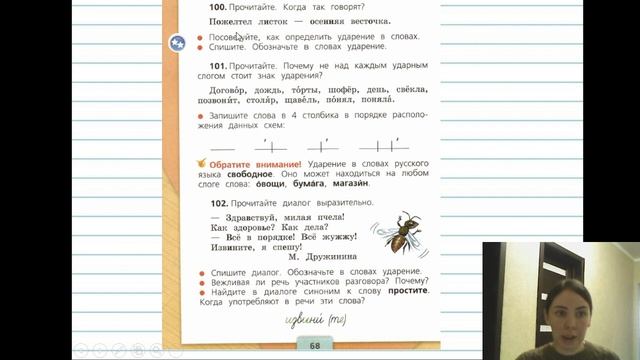 100. Прочитайте. Когда так говорят?
Пожелтел листок — осенняя весточка.
● Посоветуйте, как определить ударение в словах.
● Спишите. Обозначьте в словах ударение.
101. Прочитайте. Почему не над каждым ударным
слогом стоит знак ударения?
Догово́р, дождь, то́рты, шофёр, день, свёкла,
позвони́т, столя́р, щаве́ль, по́нял, поняла́.
● Запишите слова в 4 столбика в порядке располо-
жения данных схем:
Обратите внимание! Ударение в словах русского
языка свободное. Оно может находиться на любом
слоге слова: о́вощи, бума́га, магази́н.
102. Прочитайте диалог выразительно.
— Здравствуй, милая пчела!
Как здоровье? Как дела?
— Всё в порядке! Всё жужжу!
Извините, я спешу!
М. Дружинина
● Спишите диалог. Обозначьте в словах ударение.
● Вежливая ли речь участников разговора? Почему?
● Найдите в диалоге синоним к слову простите.
Когда употребляют в речи эти слова?
извини́ (те)
68